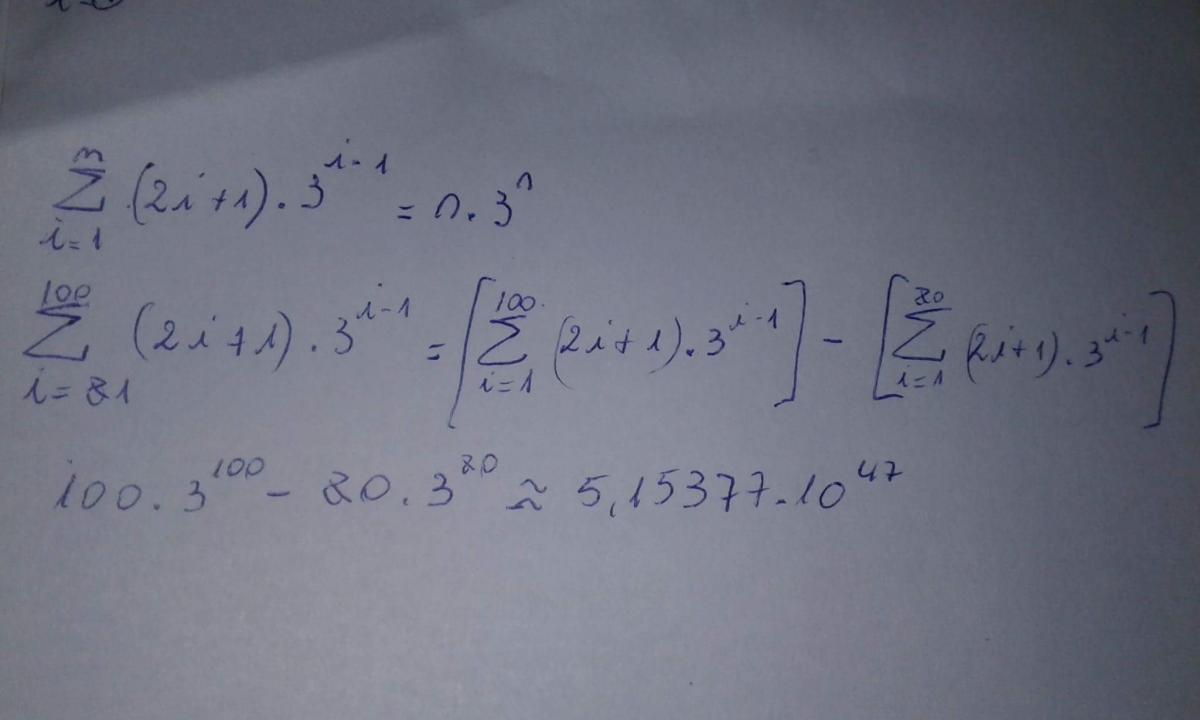 n
∑ (2i+1).3^(i-1) = n.3^n
i=1
100
∑ (2i+1).3^(i-1) = [100 ∑ i=1 (2i+1).3^(i-1)] - [80 ∑ i=1 (2i+1).3^(i-1)]
i=81
100.3^100 - 80.3^80 ≈ 5,15377.10^47